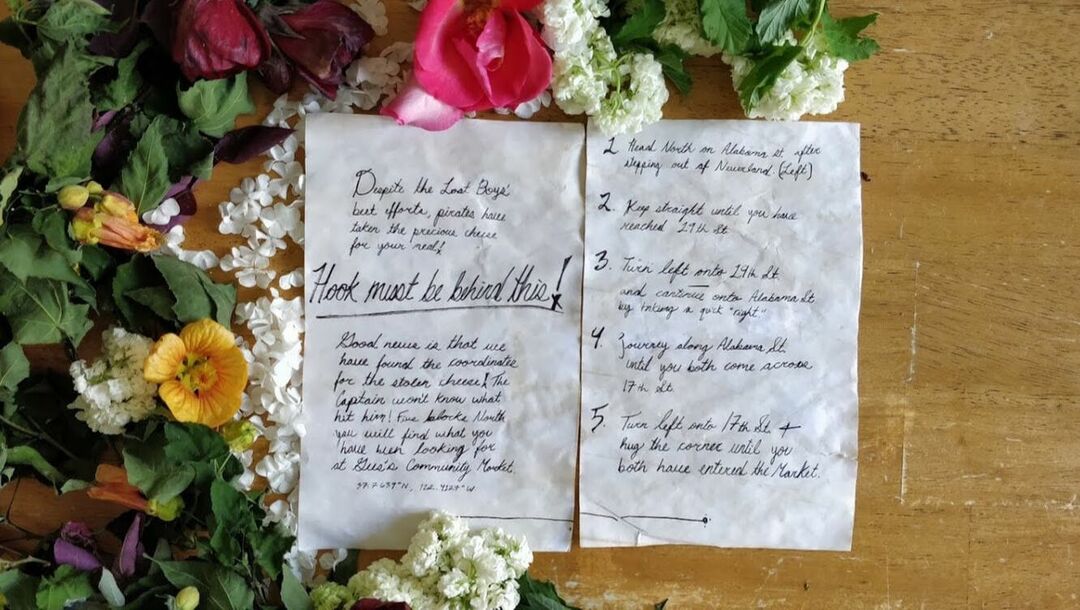 Despite the Lost Boys'
best efforts, pirates have
taken the precious cheese
for your meal!
Hook must be behind this!
Good news is that we
have found the coordinates
for the stolen cheese! The
Captain won't know what
hit him! Five blocks North
you will find what you
have been looking for
at Gus's Community Market.
1. Head North on Alabama St. after
stepping out of Neverland. (Left)
2. Keep straight until you have
reached 19th St.
3. Turn left onto 19th St.
and continue onto Alabama St.
by taking a quick "right."
4. Journey along Alabama St.
until you both come across
17th St.
5. Turn left onto 17th St. +
hug the corner until you
both have entered the Market.